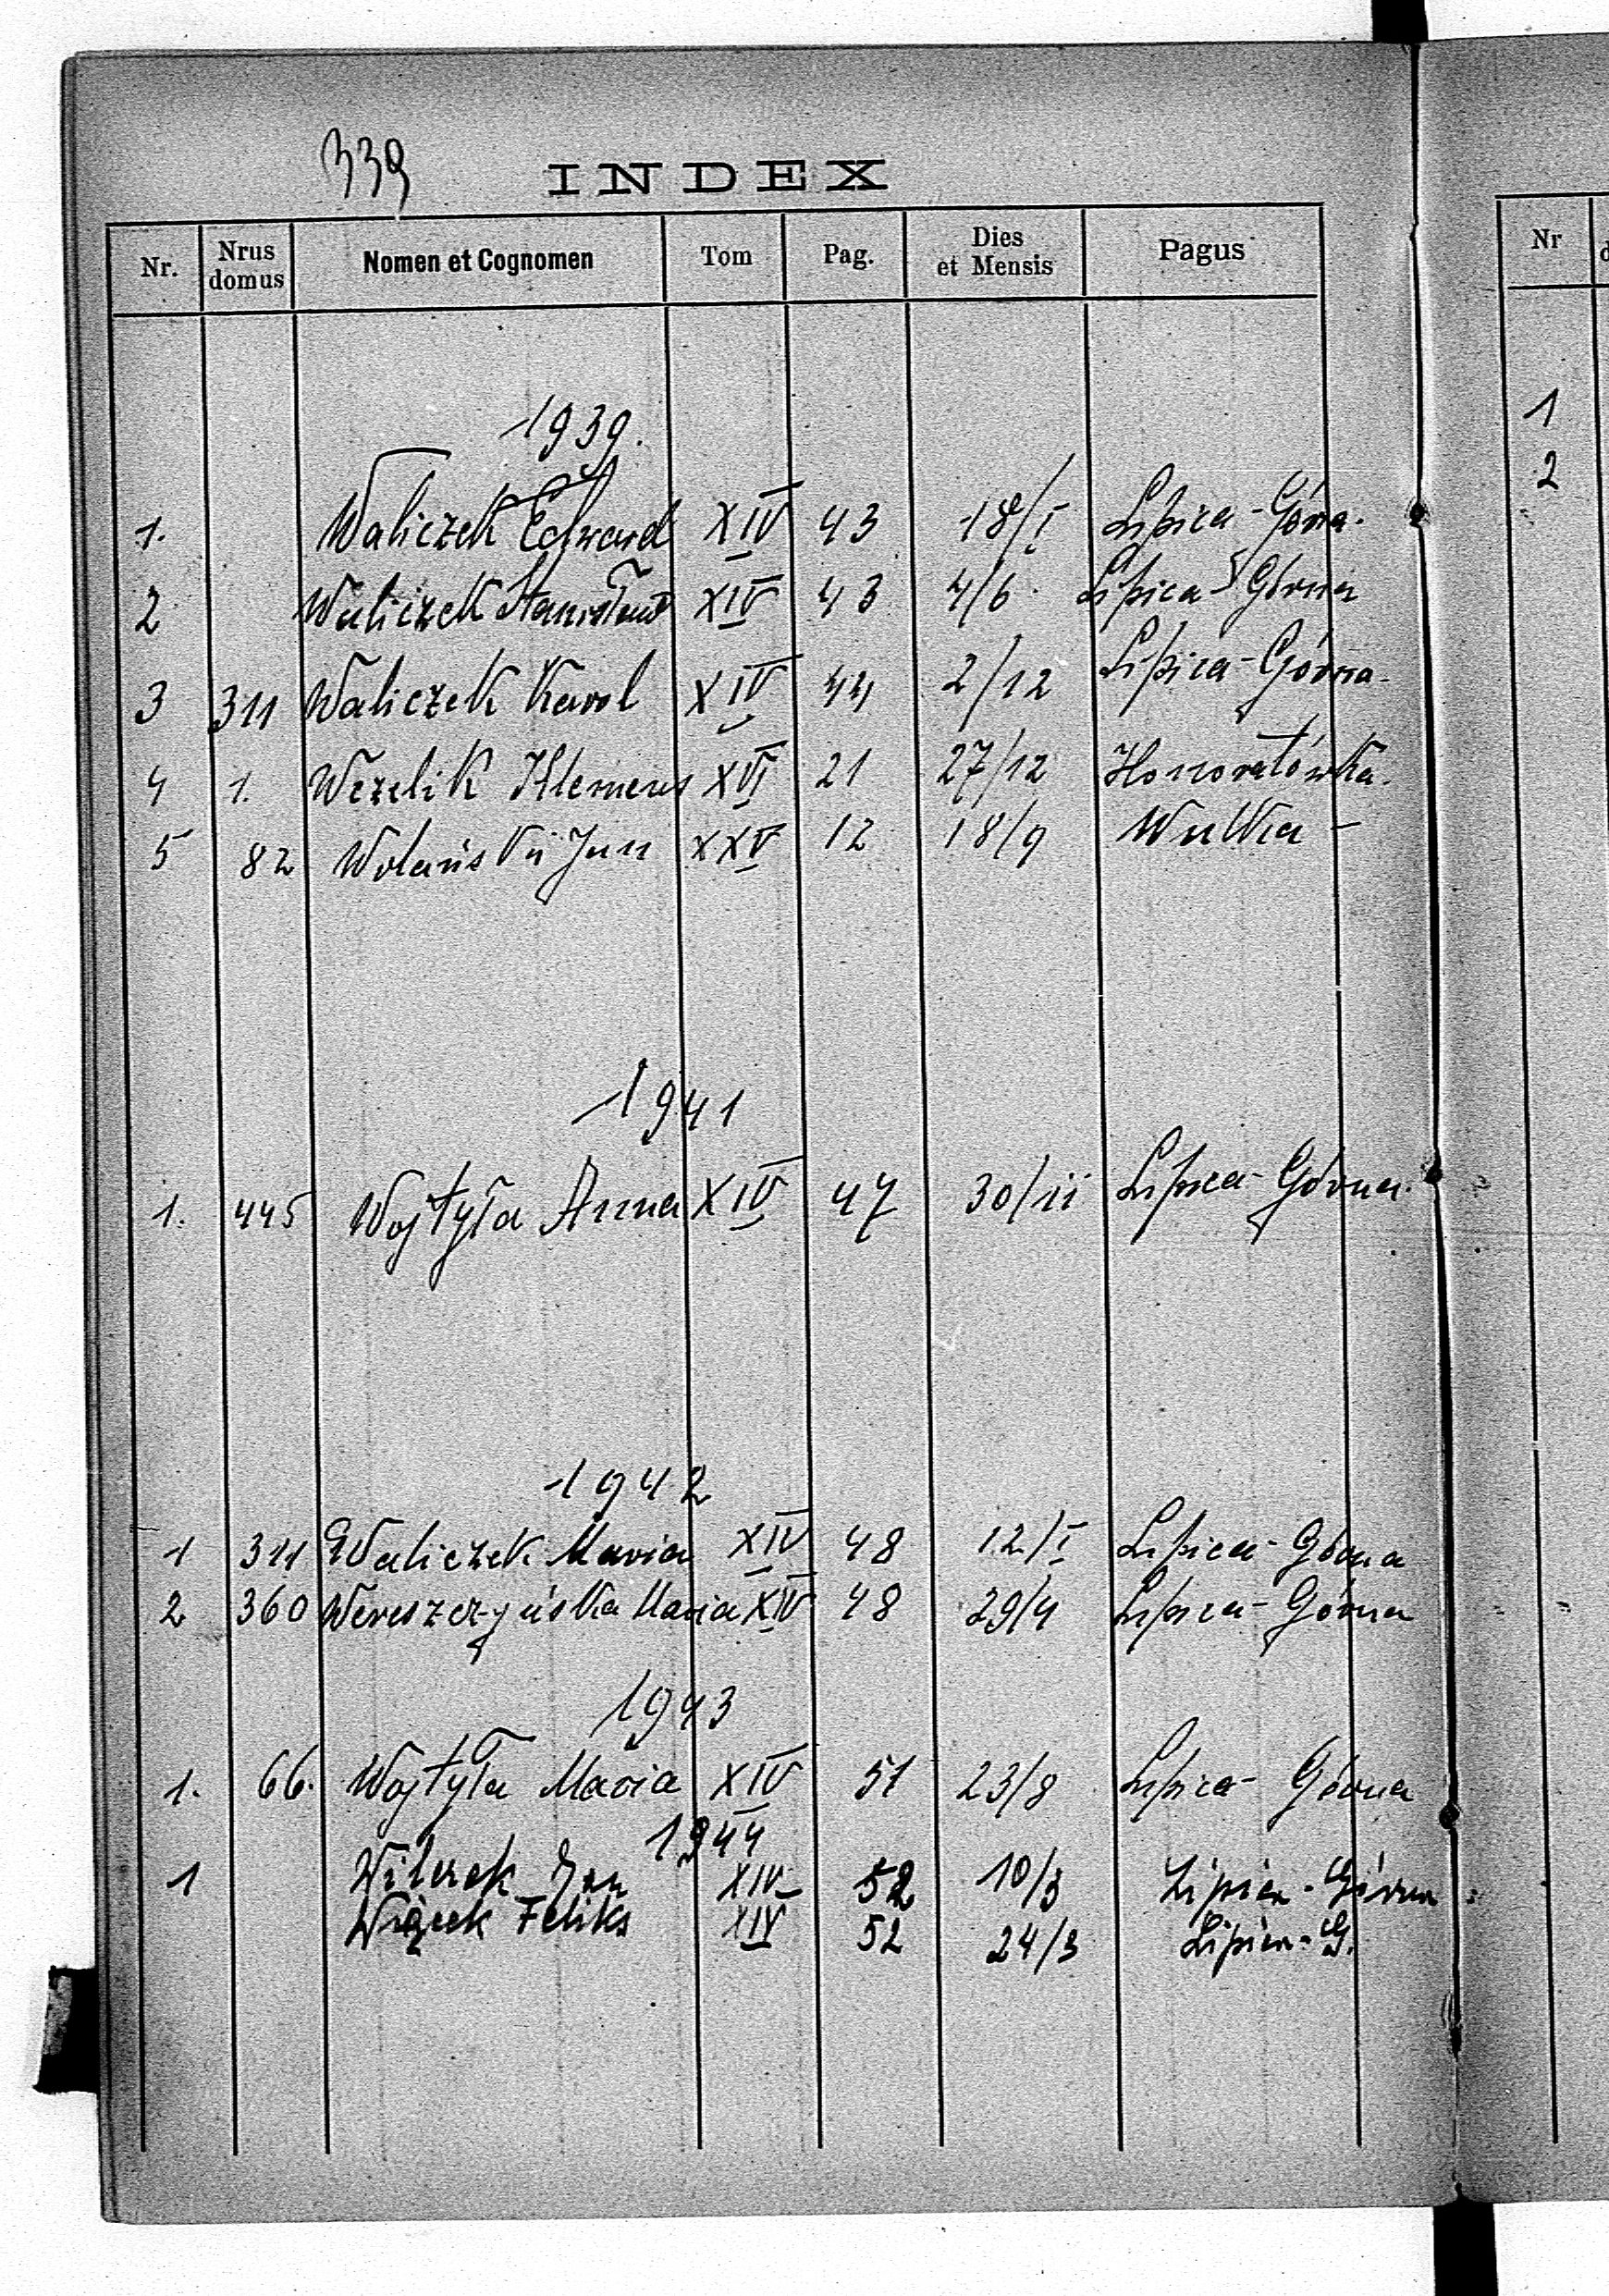 339
INDEX
Nr. Nrus domus Nomen et Cognomen Tom Pag. Dies et Mensis Pagus
1939.
1. Waliczek Edward XIV 43 18/I Lipica-Górna.
2 Waliczek Stanisław XIV 43 4/6 Lipica-Górna
3 311 Waliczek Karol XIV 44 2/12 Lipica-Górna-
4 1. Wezelik Klemens XVI 21 27/12 Honoratówka.
5 82 Wolański Jan XXV 12 18/9 Wulka -
1941
1. 445 Wojtyła Anna XIV 47 30/11 Lipica-Górna.
1942
1 311 Waliczek Maria XIV 48 12/I Lipica-Górna
2 360 Wereszczyńska Maria XIV 48 29/4 Lipica-Górna
1943
1. 66. Wojtyła Maria XIV 51 23/8 Lipica- Górna
1944
1 Wilczek Jan XIV 52 10/3 Lipica-Górna
Wiącek Feliks XIV 52 24/3 Lipica-G.
Nr
1
2